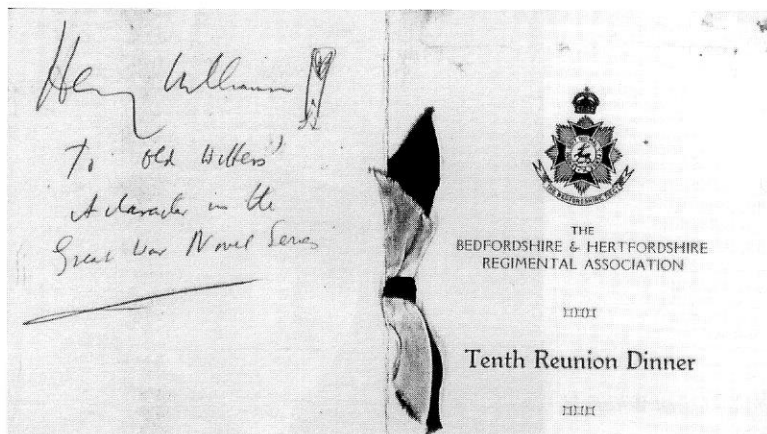 Henry Williamson
To 'Old Hitlers'
A character in the
Great War Novel Series
THE BEDFORDSHIRE REGT
THE
BEDFORDSHIRE & HERTFORDSHIRE
REGIMENTAL ASSOCIATION
Tenth Reunion Dinner